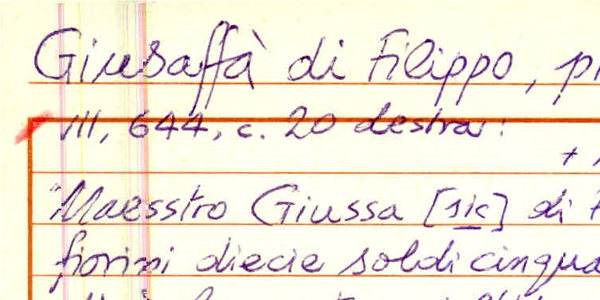 Giusaffà di Filippo, pi
VIII, 644, c. 20 destra:
"Maesstro Giussa [sic] di F
fiorini diecie soldi cinqua